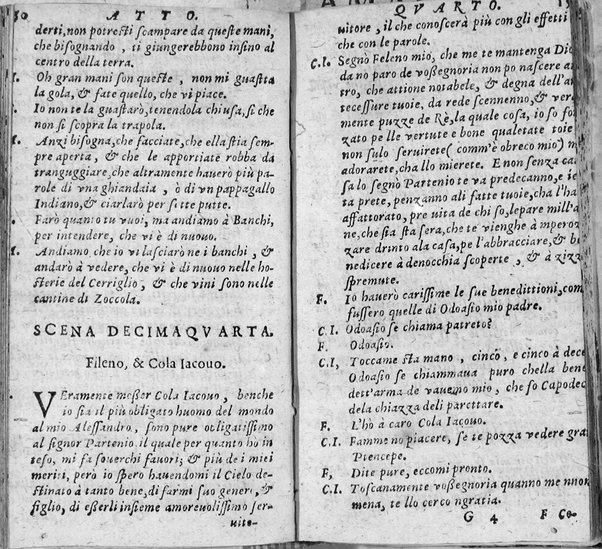 50 ATTO.
derti, non potresti scampare da queste mani,
che bisognando, ti giungerebbono insino al
centro della terra.
Oh gran mani son queste, non mi guasta
la gola, & fate quello, che vi piace.
Io non te la guastarò, tenendola chiusa, si che
non si scopra la trapola.
Anzi bisogna, che facciate, che ella stia sem-
pre aperta, & che le apportiate robba da
tranguggiare, che altramente hauerò più pa-
role di vna ghiandaia, ò di vn pappagallo
Indiano, & ciarlarò per sette putte.
Farò quanto tu vuoi, ma andiamo à Banchi,
per intendere, che vi è di nuouo.
Andiamo che io vi lasciarò ne i banchi, &
andarò à vedere, che vi è di nuouo nelle ho-
sterie del Cerriglio, & che vini sono nelle
cantine di Zoccola.
SCENA DECIMAQVARTA.
Fileno, & Cola Iacouo.
VEramente meßer Cola Iacouo, benche
io sia il più obligato huomo del mondo
al mio Alessandro, sono pure obligatissimo
al signor Partenio. il quale per quanto hò in
teso, mi fa souerchi fauori; & più de i miei
meriti, però io spero hauendomi il Cielo de-
stinato à tanto bene, di farmi suo genero, &
figlio, di eßerli insieme amoreuolissimo ser-
uito-
QVARTO.
uitore, il che conoscerà più con gli effetti
che con le parole.
C.I. Segnò Feleno mio, che me te mantenga Dio
da no paro de voßegnoria non po nascere au
tro, che attione notabele, & degna dell'an
tecessure tuoie, da rede scennenno, & vera
mente puzze de Rè, la quale cosa, io so for
zato pe lle vertute e bone qualetate toie
non sulo seruirete (comm'è obreco mio) ma
adorarete, cha llo mierete. E non senza cau
sa lo segnò Partenio te va predecanno, e te
ta prete, penzanno ali fatte tuoie, cha l'ha
affattorato, pre uita de chi so, lepare mill'an
ne, che stà sta sera, che te vienghe à mperoz
zare drinto ala casa, pe l'abbracciare, & be
nedicere à denocchia scoperte, & à zizze
spremute.
F. Io hauerò carissime le sue benedittioni, come
fussero quelle di Odoasio mio padre.
C.I. Odoasio se chiama patreto?
F. Odoasio.
C.I, Toccame sta mano, cinco, e cinco à dece
Odoasio se chiammaua puro chella bene
dett'arma de vauemo mio, che fo Capodece
dela chiazza deli parettare.
F. L'hò à caro Cola Iacouo.
C.I. Famme no piacere, se te pozza vedere gran
Ptencepe.
F, Dite pure, eccomi pronto.
C.I. Toscanamente voßegnoria quanno me nnom
mena, te llo cerco ngratia.
G 4 F Co-